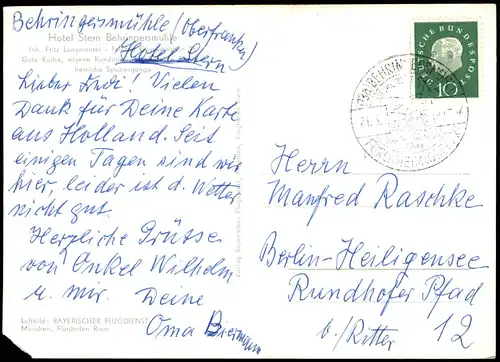 Behringersmühle (Oberfranken)
Hotel Stern Behringersmühle
Inh. Fritz Langmantel
Hotel Stern
Gute Küche, eigene
herrliche Spaziergänge
Lieber Fredi! Vielen
Dank für Deine Karte
aus Holland. Seit
einigen Tagen sind wir
hier, leider ist d. Wetter
nicht gut.
Herzliche Grüsse
von Onkel Wilhelm
u. mir. Deine
Oma Biermann
Luftbild: BAYERISCHER FLUGDIENST
München, Flughafen Riem
DEUTSCHE BUNDESPOST
10
Herrn
Manfred Raschke
Berlin-Heiligensee
Rundhofer Pfad
b./Ritter 12